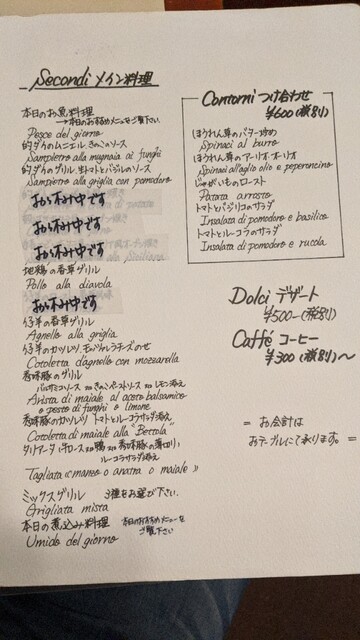 Secondi メイン料理
本日のお魚料理
→本日のおすすめメニューをご覧下さい
Pesce del giorno
的ダイのムニエル きのこのソース
Sampietro alla mugnaia ai funghi
的ダイのグリル 生トマトとバジルのソース
Sampietro alla griglia con pomodoro
お休み中です
お休み中です
お休み中です
地鶏の香草グリル
Pollo alla diavola
お休み中です
仔羊の香草グリル
Agnello alla griglia
仔羊のカツレツ、モッツァレラチーズのせ
Cotoletta d'agnello con mozzarella
香味豚のグリル
バルサミコソース or きのこペーストソース or レモン添え
Arista di maiale al aceto balsamico
o pesto di funghi o limone
香味豚のカツレツ トマトとルーコラサラダ添え
Cotoletta di maiale alla "Bettola"
タリアータ (牛ロース or 鴨 or 香味豚の薄切り)
ルーコラサラダ添え
Tagliata «manzo o anatra o maiale»
ミックスグリル 3種をお選び下さい
Grigliata mista
本日の煮込み料理 本日のおすすめメニューをご覧下さい
Umido del giorno
Contorni つけ合わせ
¥600(税別)
ほうれん草のバター炒め
Spinaci al burro
ほうれん草のアーリオ・オーリオ
Spinaci all'aglio olio e peperoncino
じゃがいものロースト
Patata arrosto
トマトとバジリコのサラダ
Insalata di pomodoro e basilico
トマトとルーコラのサラダ
Insalata di pomodoro e rucola
Dolci デザート
¥500-(税別)
Caffé コーヒー
¥300(税別)～
= お会計は
おテーブルにて承ります。 =